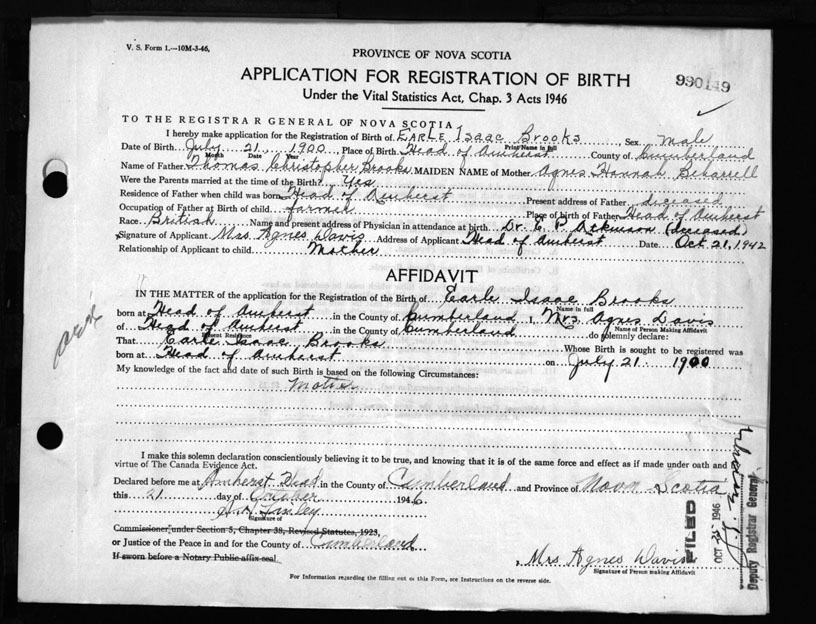 V. S. Form 1.—10M-3-46.
PROVINCE OF NOVA SCOTIA
APPLICATION FOR REGISTRATION OF BIRTH
Under the Vital Statistics Act, Chap. 3 Acts 1946
990149
TO THE REGISTRAR GENERAL OF NOVA SCOTIA
I hereby make application for the Registration of Birth of EARLE Isaac Brooks, Sex Male
Print Name in full
Date of Birth July 21 1900 Place of Birth Head of Amherst County of Cumberland
Month Date Year
Name of Father Thomas Christopher Brooks MAIDEN NAME of Mother Agnes Hannah
Were the Parents married at the time of the Birth? Yes
Residence of Father when child was born Head of Amherst Present address of Father deceased
Occupation of Father at Birth of child farmer Place of birth of Father Head of Amherst
Race British Name and present address of Physician in attendance at birth Dr. E. P. Atkinson (deceased)
Signature of Applicant Mrs Agnes Davis Address of Applicant Head of Amherst Date Oct 21, 1942
Relationship of Applicant to child Mother
AFFIDAVIT
IN THE MATTER of the application for the Registration of the Birth of Earle Isaac Brooks
Name in full
born at Head of Amherst in the County of Cumberland I, Mrs Agnes Davis
Name of Person Making Affidavit
of Head of Amherst in the County of Cumberland do solemnly declare:
Present Residence
That Earle Isaac Brooks Whose Birth is sought to be registered was
born at Head of Amherst on July 21 1900
My knowledge of the fact and date of such Birth is based on the following Circumstances:
Mother
I make this solemn declaration conscientiously believing it to be true, and knowing that it is of the same force and effect as if made under oath and by
virtue of The Canada Evidence Act.
Declared before me at Amherst Head in the County of Cumberland and Province of Nova Scotia
this 21 day of October 1946
Signature of
Commissioner under Section 5, Chapter 38, Revised Statutes, 1923,
or Justice of the Peace in and for the County of Cumberland
If sworn before a Notary Public affix seal
Mrs Agnes Davis
Signature of Person making Affidavit
FILED
OCT 1946
Deputy Registrar General
For Information regarding the filling out of this Form, see Instructions on the reverse side.